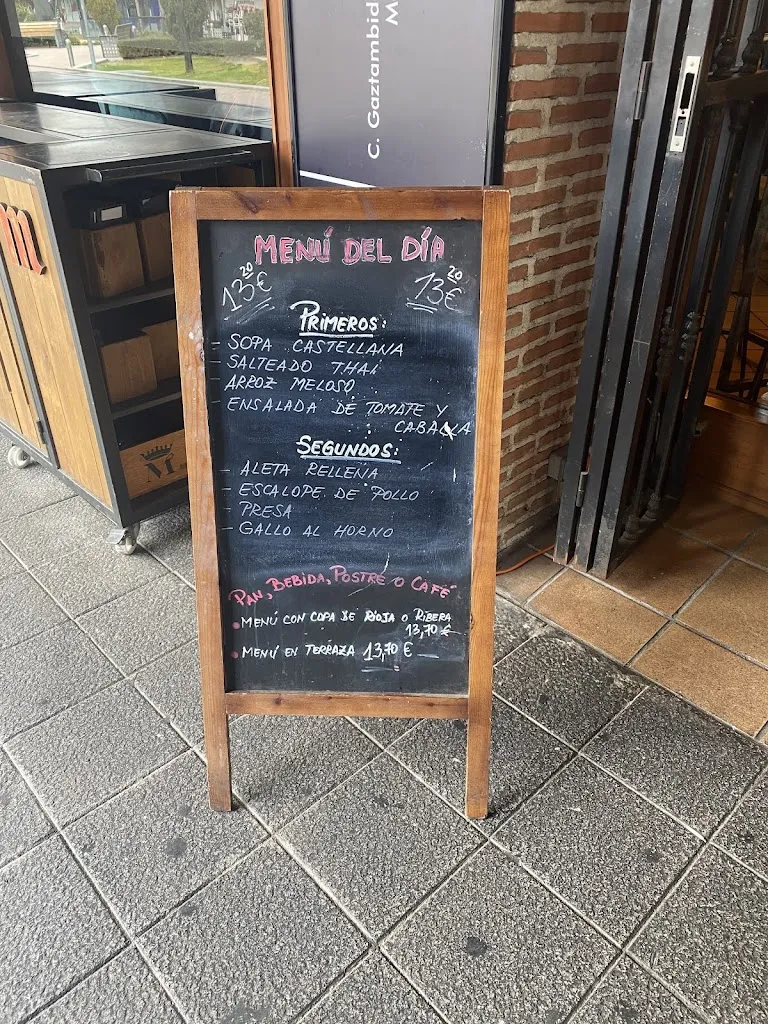 C. Gaztambid
M
m
MENÚ DEL DÍA
13,20€ 13,20€
PRIMEROS:
- SOPA CASTELLANA
- SALTEADO THAI
- ARROZ MELOSO
- ENSALADA DE TOMATE Y
CABALLA
SEGUNDOS:
- ALETA RELLENA
- ESCALOPE DE POLLO
- PRESA
- GALLO AL HORNO
PAN, BEBIDA, POSTRE O CAFÉ
• MENÚ CON COPA DE RIOJA O RIBERA
13,70 €
• MENÚ EN TERRAZA 13,70 €
M